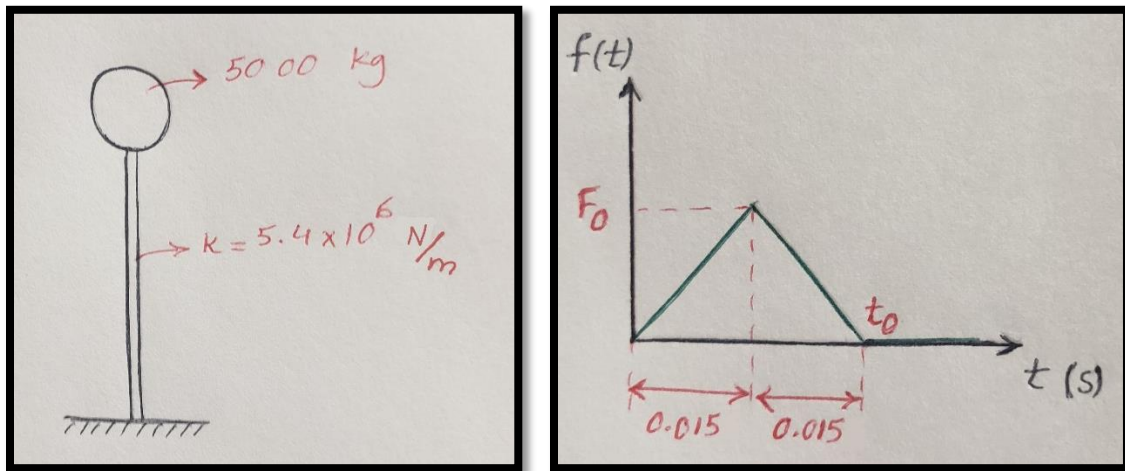 5000 kg
k = 5.4 x 10^6 N/m
f(t)
F0
t0
t (s)
0.015 0.015